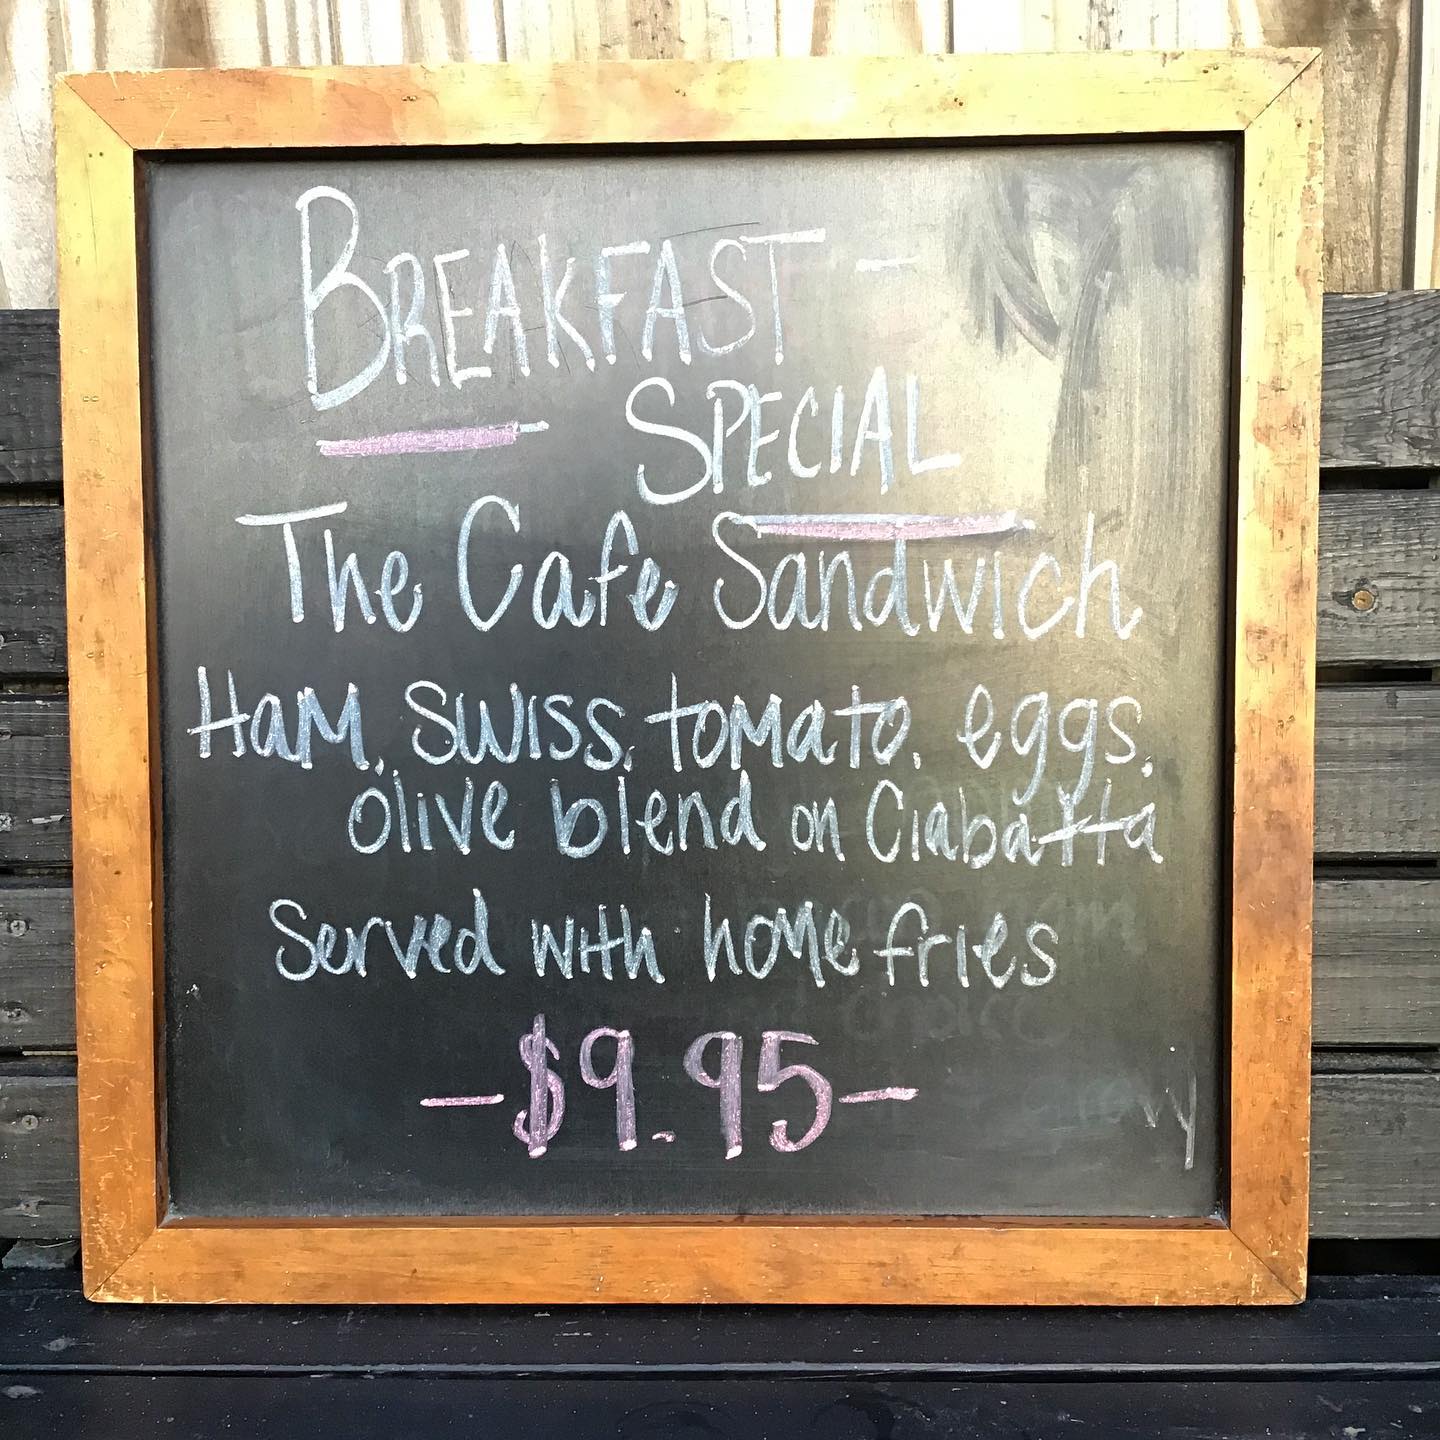 BREAKFAST -
SPECIAL
The Cafe Sandwich
Ham, swiss, tomato, eggs,
olive blend on Ciabatta
Served with home fries
- $9.95 -
gravy